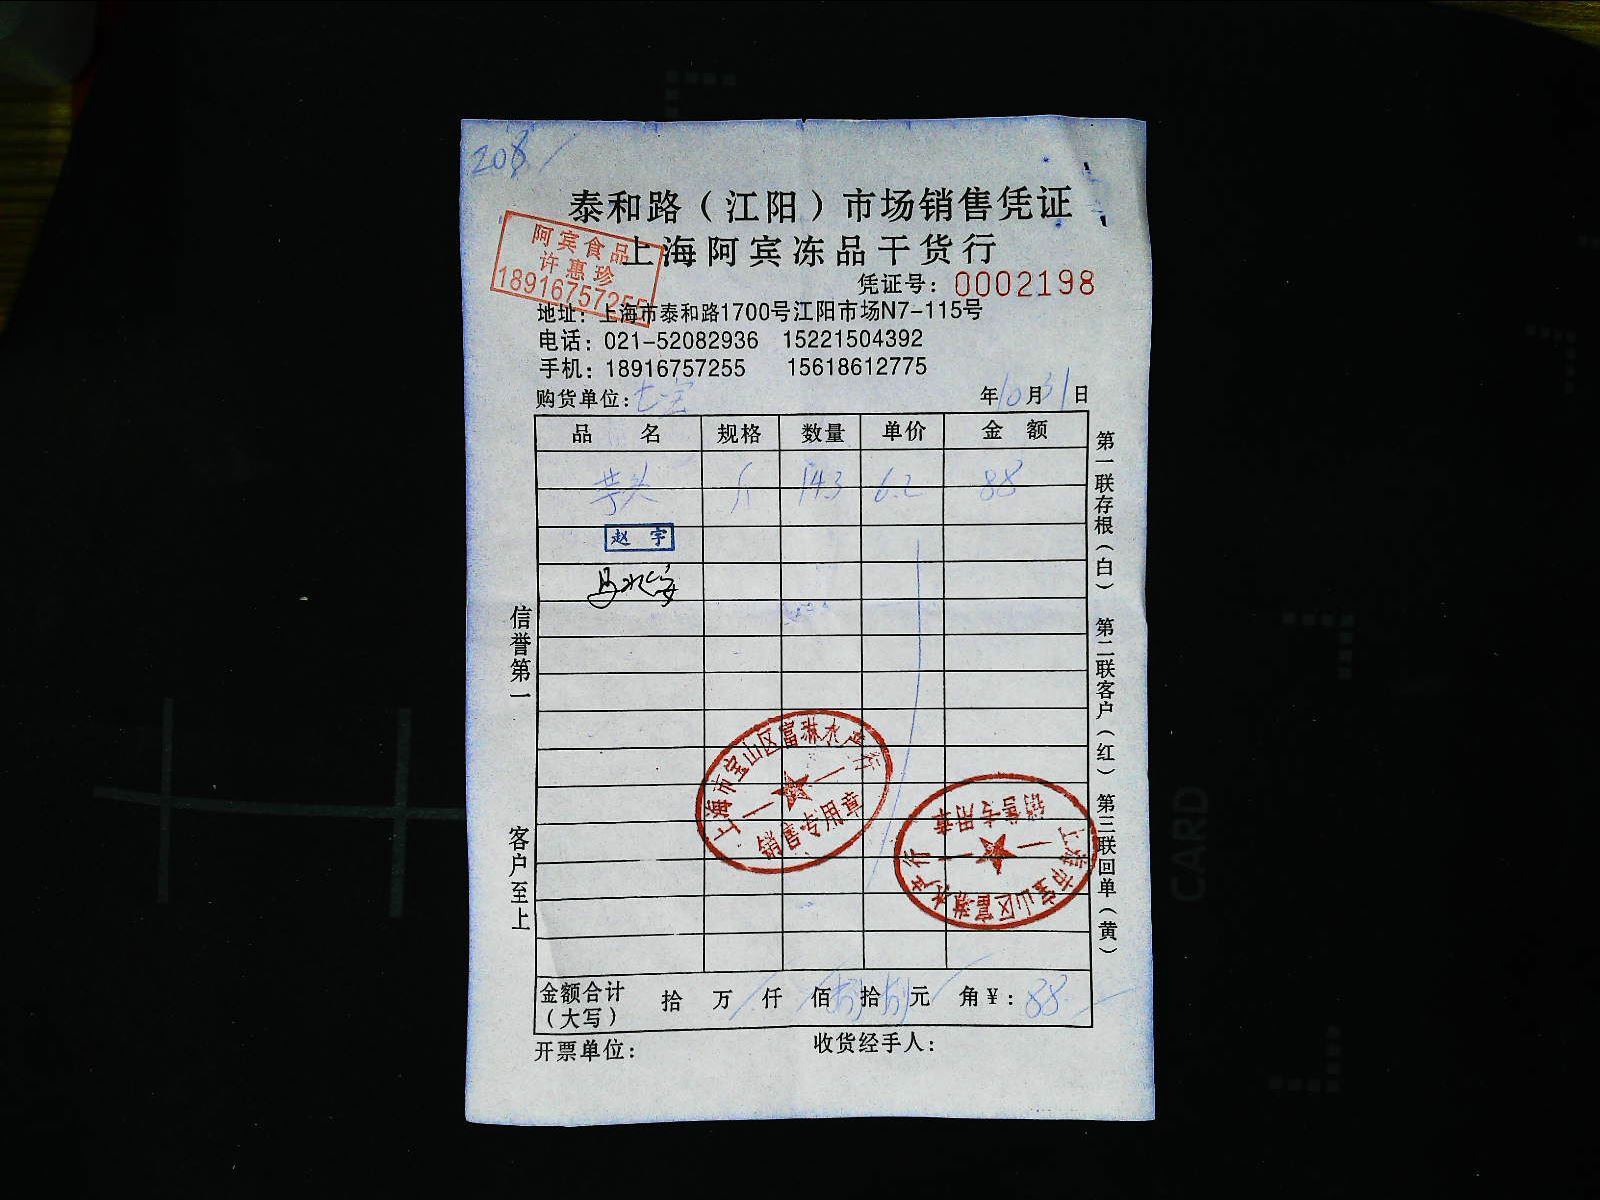 208
泰和路（江阳）市场销售凭证
上海阿宾冻品干货行
阿宾食品
许惠珍
18916757255
凭证号：0002198
地址：上海市泰和路1700号江阳市场N7-115号
电话：021-52082936 15221504392
手机：18916757255 15618612775
购货单位：七宝 年10月31日
品名 规格 数量 单价 金额
芋头 斤 14.3 6.2 88
赵宇
信誉第一
客户至上
第一联存根（白） 第二联客户（红） 第三联回单（黄）
上海市宝山区富琳水产行
销售专用章
上海市宝山区富琳水产行
销售专用章
金额合计（大写） 拾 万 仟 佰 捌拾捌元 角￥：88
开票单位： 收货经手人：